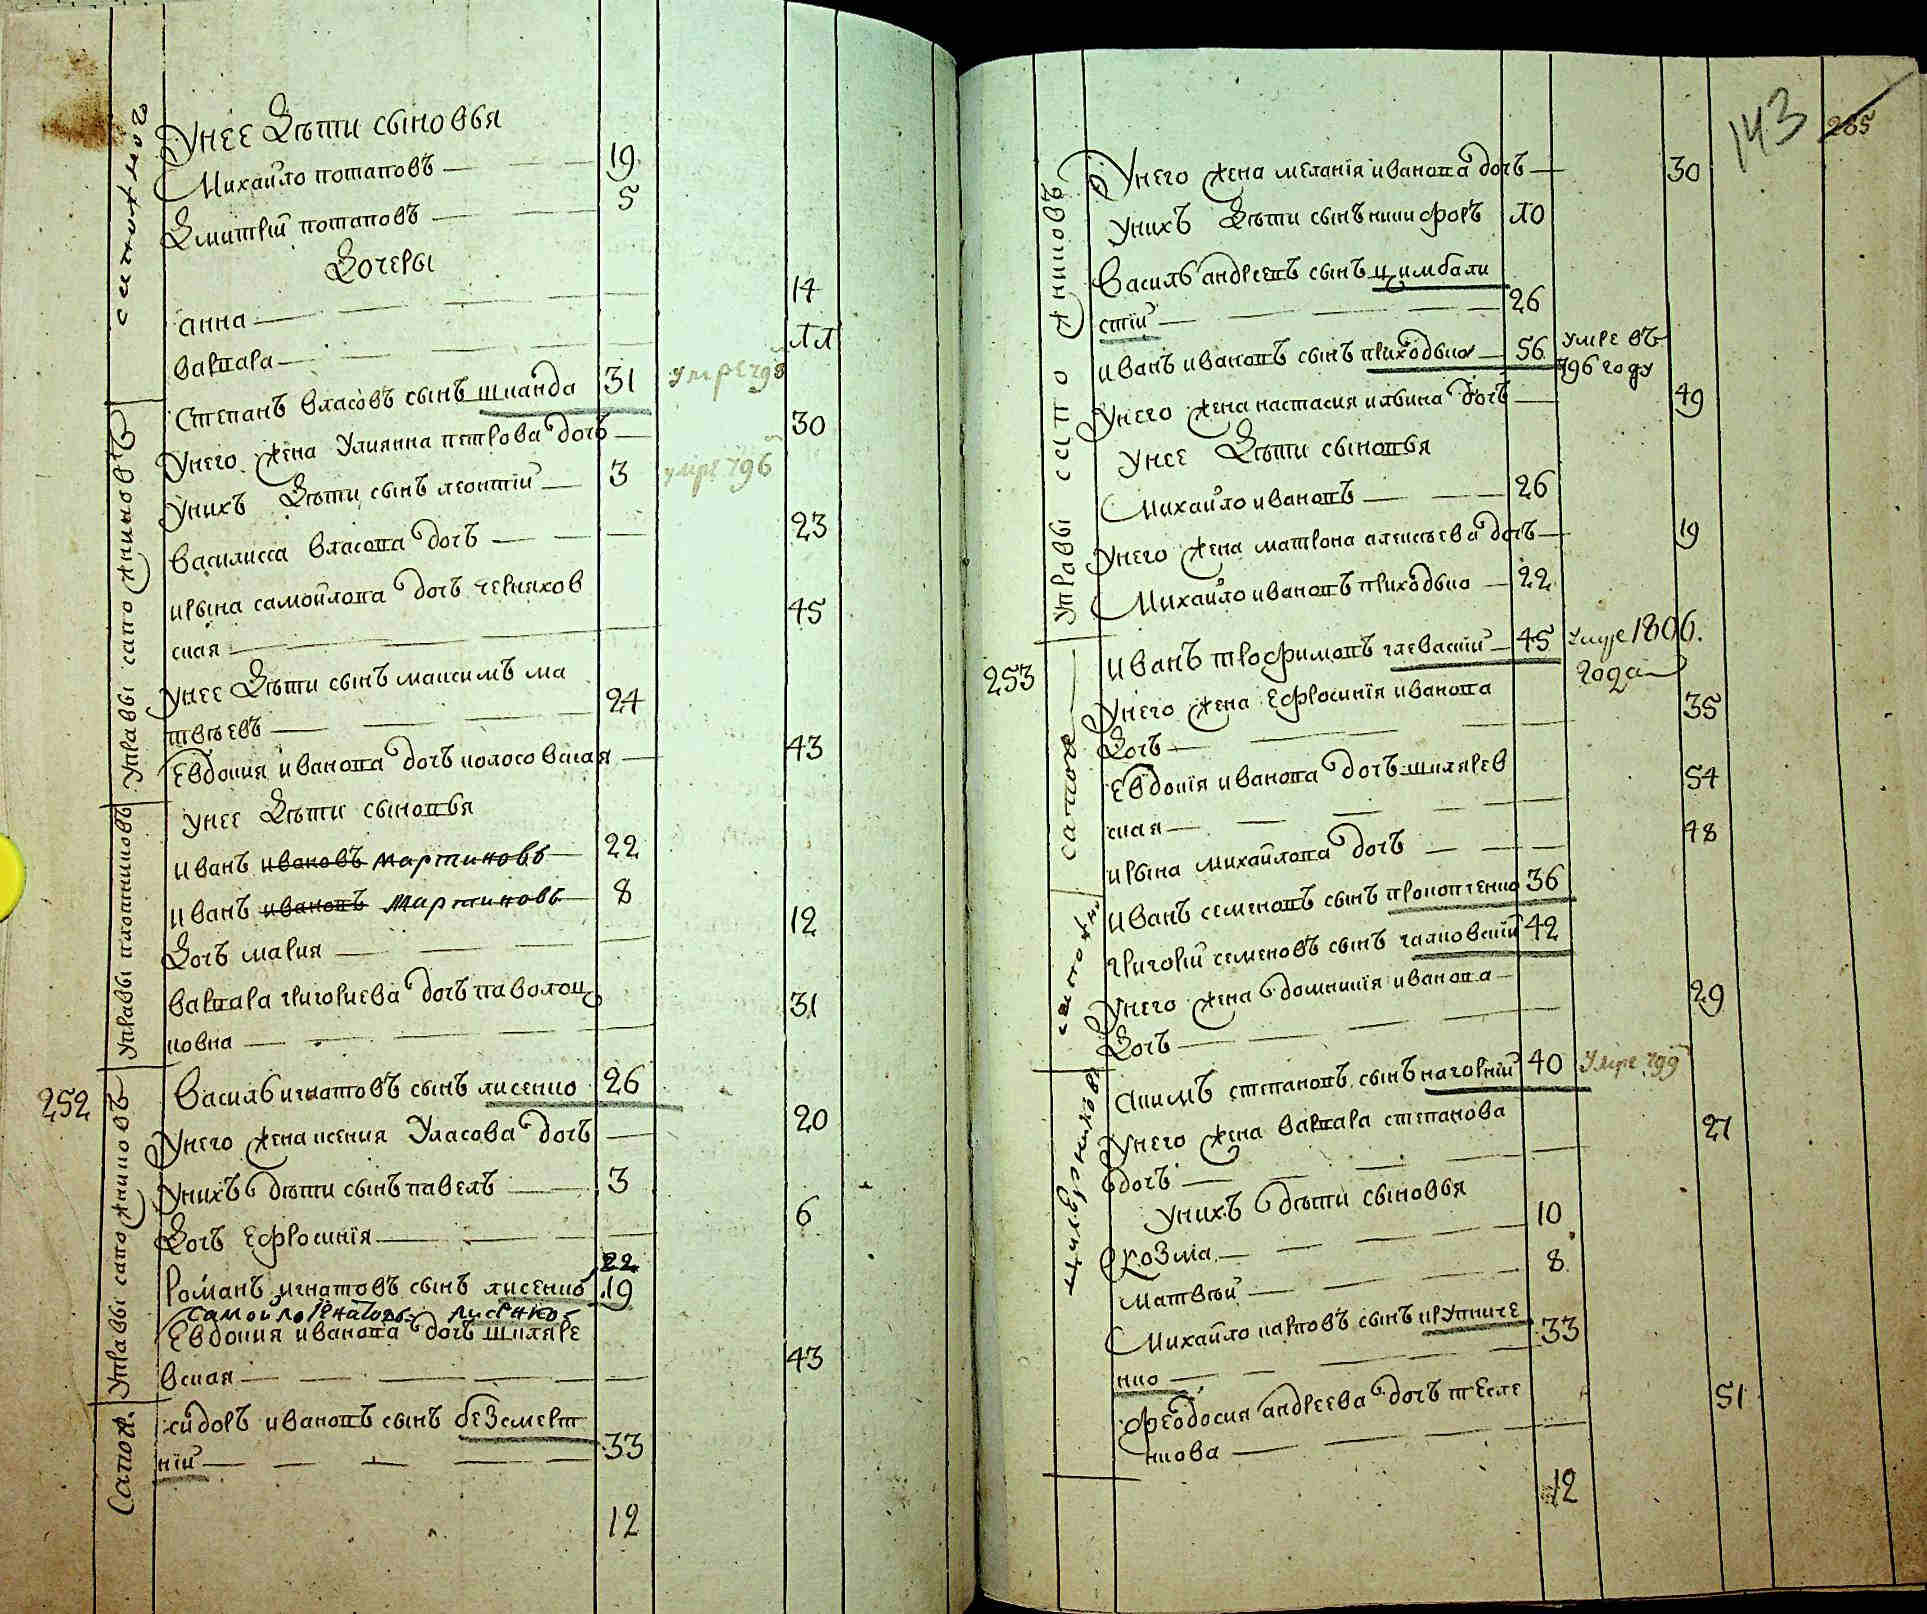 сапожноč
Унее Дѣти сыновья
Михайло потаповъ — 19
Дмитрій потаповъ — 5
Дочеры
анна — 14
варвара — 11
Управы сапожниковъ
Степанъ власовъ сынъ шканда 31 умре 798
Унего жена Улиянна петрова дочь — 30
Унихъ Дѣти сынъ леонтій — 3 умре 796
василисса власова дочь — 23
ирына самойлова дочь черняхов
ская — 45
Унее Дѣти сынъ максимъ ма
твѣевъ — 24
Евдокия иванова дочь колосовская — 43
Управы плотниковъ
Унее Дѣти сыновья
иванъ ивановъ мартиновъ — 22
иванъ ивановъ Мартиновъ — 8
Дочь мария — 12
варвара григориева дочь паволоц
ковна — 31
252
Управы сапожниковъ
василь игнатовъ сынъ лисенко 26
Унего жена ксения Уласова дочь — 20
Унихъ дѣти сынъ павелъ — 3
Дочь Ефросинія — 6
22
Романъ игнатовъ сынъ лисенко 19
Самойло лисенко
Евдокия иванова дочь шкляре
вская — 43
Сапож.
сидоръ ивановъ сынъ безсмерт
ній — 33
12
143 285
Управы сапожниковъ
Унего жена меланія иванова дочь — 30
Унихъ Дѣти сынъ никифоръ 10
василь андреевъ сынъ цимбали
стій — 26
иванъ ивановъ сынъ приходько — 56 умре въ
796 году
Унего жена настасия илвина дочь — 49
Унее Дѣти сыновья
Михайло ивановъ — 26
Унего жена матрона алексѣева дочь — 19
Михайло ивановъ приходько — 22
253
сапож
иванъ трофимовъ глеваскій — 45 умре 1806.
года
Унего жена Ефросинія иванова
Дочь — 35
Евдокія иванова дочь шкларев
ская — 54
ирына михайлова дочь — 48
сапож
иванъ семеновъ сынъ прокопченко 36
григорій семеновъ сынъ галковскій 42
Унего жена домникія иванова —
Дочь — 29
Цилюрниковъ
акимъ степановъ сынъ нагорній 40 Умре 799
Унего жена варвара степанова
дочь — 27
Унихъ дѣти сыновья
козма — 10
матвѣй — 8
Михайло карповъ сынъ крупниче
нко — 33
феодосия андреева дочь тесле
нкова — 51
12